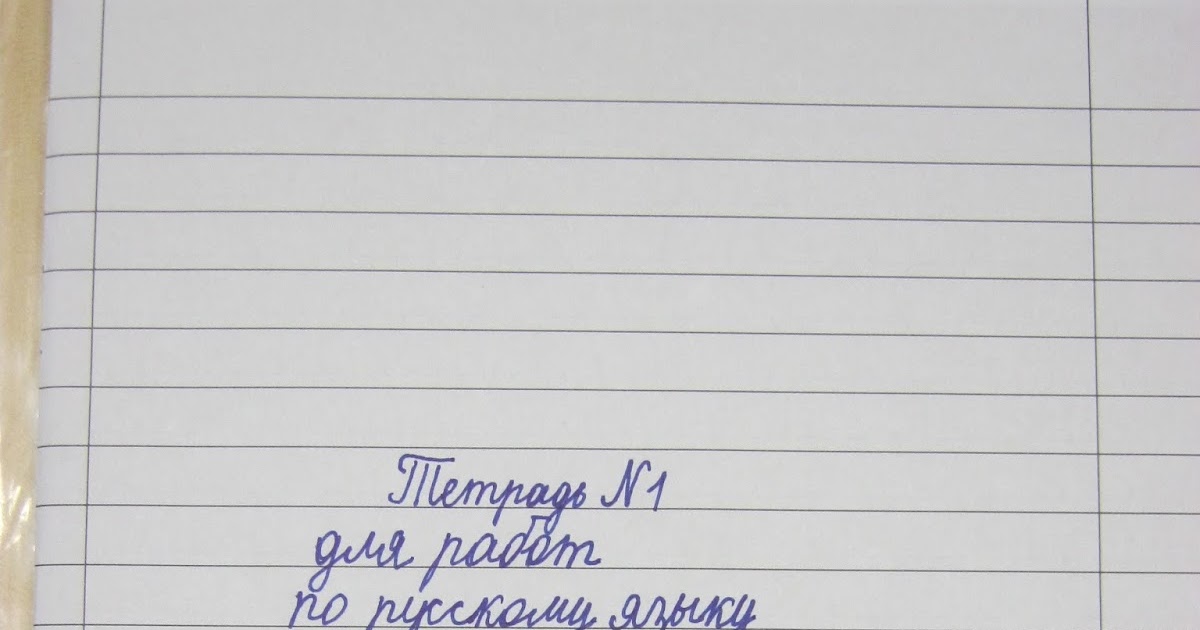 Тетрадь N1
для работ
по русскому языку